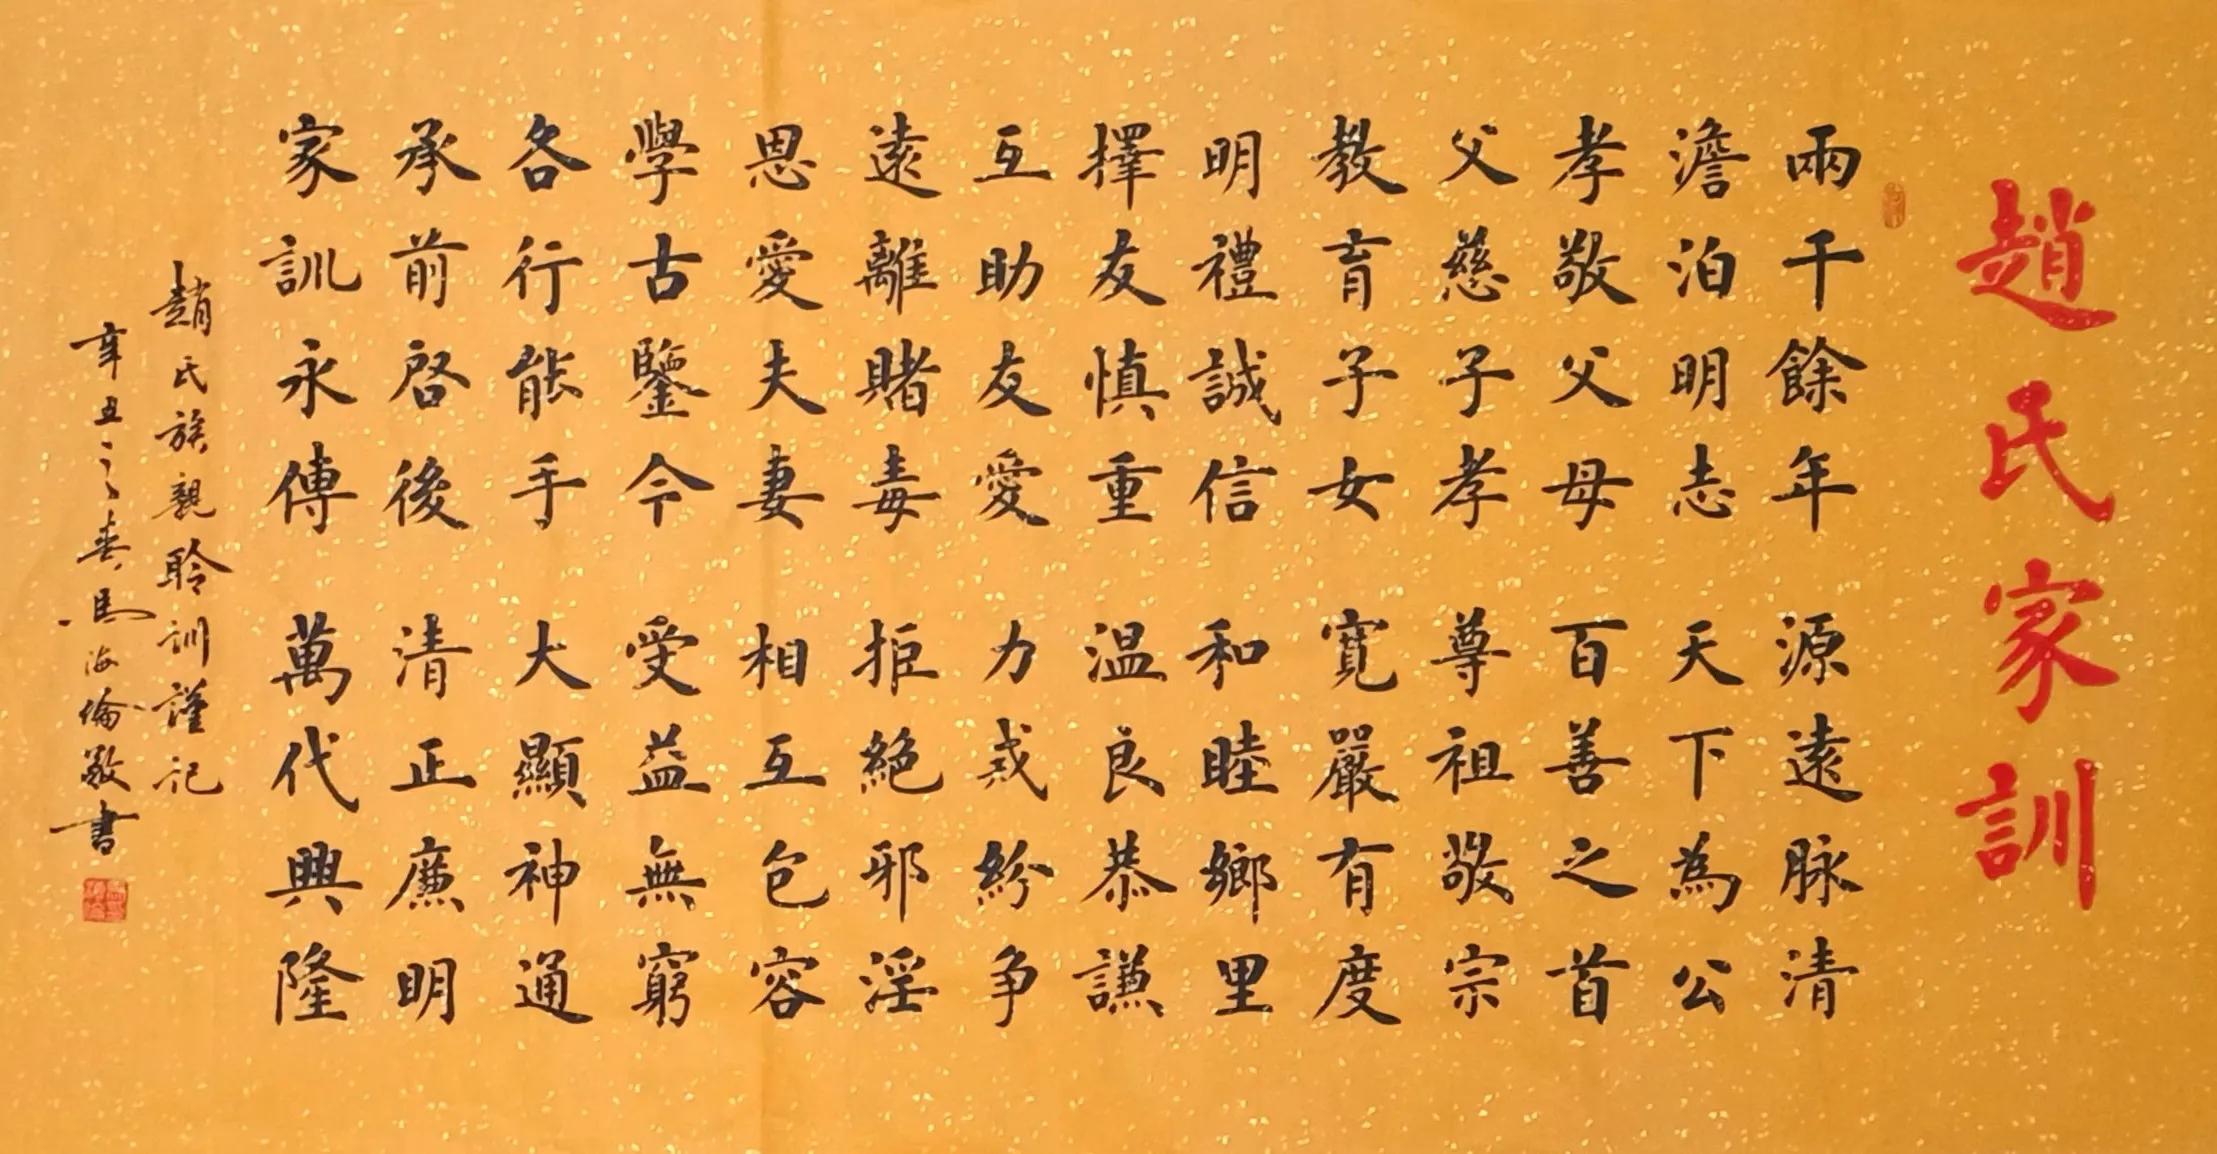 趙氏家訓
兩千餘年 源遠脉清
澹泊明志 天下為公
孝敬父母 百善之首
父慈子孝 尊祖敬宗
教育子女 寬嚴有度
明禮誠信 和睦鄉里
擇友慎重 温良恭謙
互助友愛 力戒紛争
遠離賭毒 拒絕邪淫
恩愛夫妻 相互包容
學古鑒今 受益無窮
各行能手 大顯神通
承前啓後 清正廉明
家訓永傳 萬代興隆
趙氏族親聆訓謹記
辛丑之春馬海倫敬書